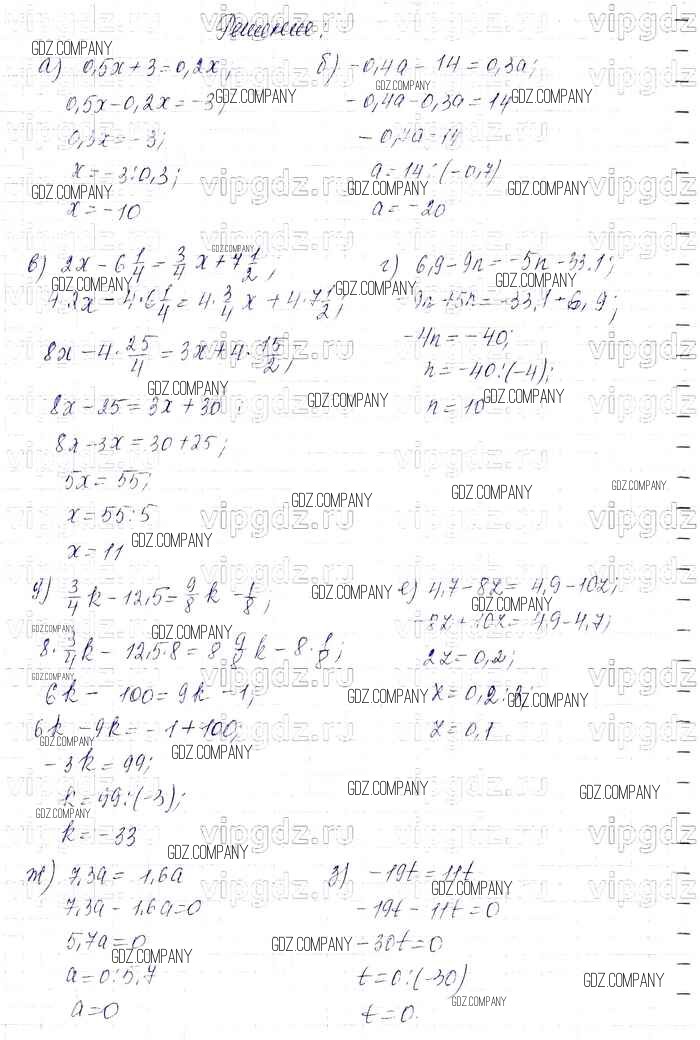 Решение:
а) 0,5x + 3 = 0,2x;
0,5x - 0,2x = -3;
0,3x = -3;
x = -3 : 0,3;
x = -10
б) -0,4a - 14 = 0,3a;
-0,4a - 0,3a = 14
-0,7a = 14
a = 14 : (-0,7)
a = -20
в) 2x - 6 1/4 = 3/4 x + 7 1/2;
4·2x - 4·6 1/4 = 4·3/4 x + 4·7 1/2;
8x - 4·25/4 = 3x + 4·15/2;
8x - 25 = 3x + 30;
8x - 3x = 30 + 25;
5x = 55;
x = 55 : 5
x = 11
г) 6,9 - 9n = -5n - 33,1;
-9n + 5n = -33,1 - 6,9;
-4n = -40;
n = -40 : (-4);
n = 10
д) 3/4 k - 12,5 = 9/8 k - 1/8;
8·3/4 k - 12,5·8 = 8 9/8 k - 8·1/8;
6k - 100 = 9k - 1;
6k - 9k = -1 + 100;
-3k = 99;
k = 99 : (-3);
k = -33
е) 4,7 - 8z = 4,9 - 10z;
-8z + 10z = 4,9 - 4,7;
2z = 0,2;
z = 0,2 : 2;
z = 0,1
ж) 7,3a = 1,6a
7,3a - 1,6a = 0
5,7a = 0
a = 0 : 5,7
a = 0
з) -19t = 11t
-19t - 11t = 0
-30t = 0
t = 0 : (-30)
t = 0.
GDZ.COMPANY
vipgdz.ru